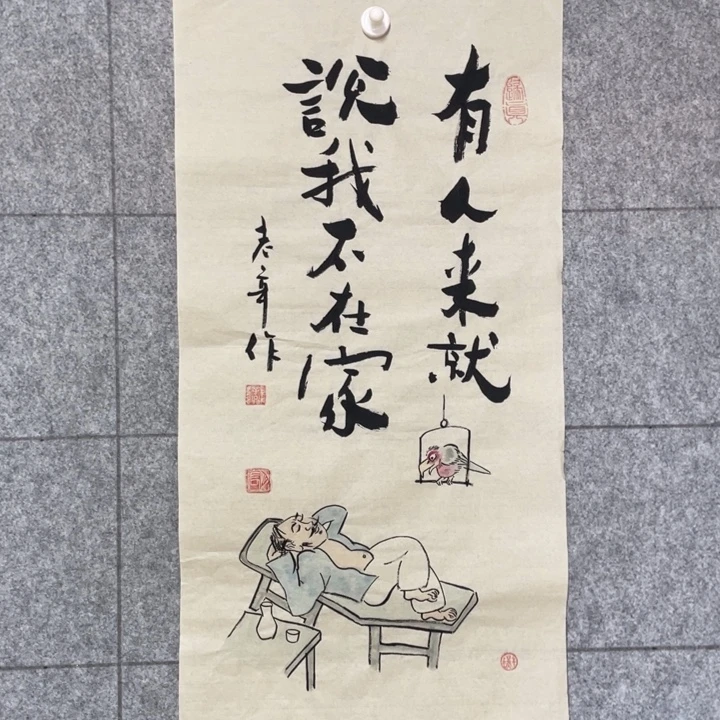 有人来就
說我不在家
老辛作